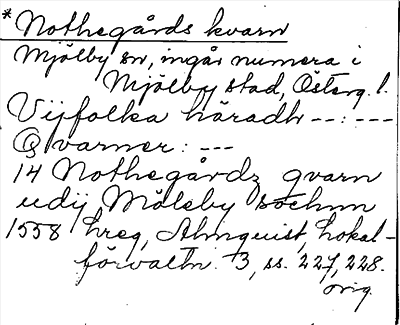 * Nothegårds kvarn
Mjölby sn, ingår numera i
Mjölby stad, Österg. l.
Vijfolka häradh --:---
Qvarner: ---
14 Nothegårdz qvarn
udij Möleby sochnn
1558 hreg, Almquist, Lokal-
förvaltn. 3, ss. 227, 228.
orig.